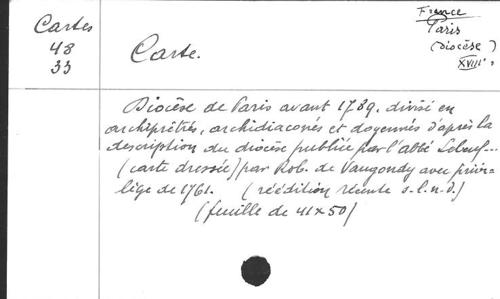 Cartes
48
33
Carte.
France
Paris
(Diocèse)
XVIIIe
Diocèse de Paris avant 1789. divisé en
archiprêtrés, archidiaconés et doyennés d'après la
description du diocèse publiée par l'abbé Lebeuf...
(carte dressée) par Rob. de Vaugondy avec privi-
lège de 1761. (réédition récente s.l.n.d.)
(feuille de 41x50)